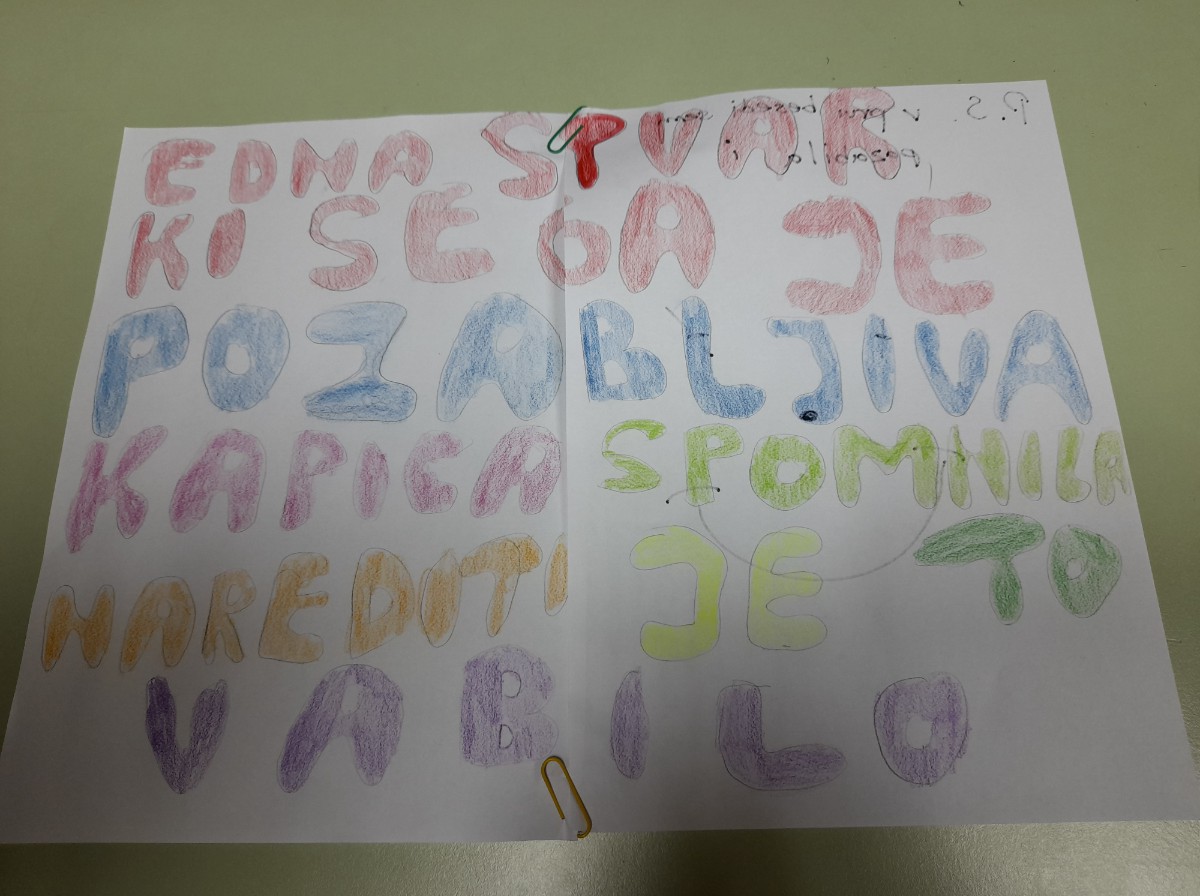 P. S. v prvi besedi sem
pozabila i
EDNA STVAR
KI SE GA JE
POZABLJIVA
KAPICA SPOMNILA
NAREDITI JE TO
VABILO